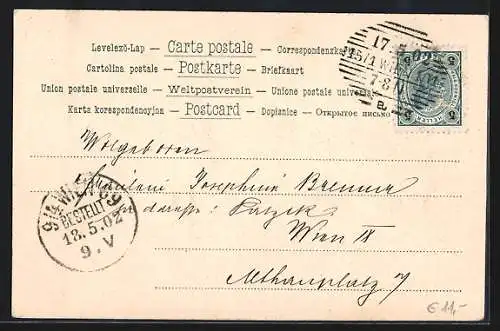 Levelező-Lap — Carte postale — Correspondenzka
Cartolina postale — Postkarte — Briefkaart
Union postale universelle — Weltpostverein — Unione postale universal
Karta korespondencyjna — Postcard — Dopisnice — Открытое письмо
17.5
15/1 WIEN
7-8 N
a.
5 5
HELLER
5 5
Wolgeboren
Fräulein Josephine Brenner
Wien IX
Althanplatz 7
9/4 WIEN 69
BESTELLT
18.5.02
9.V
€ 11,-